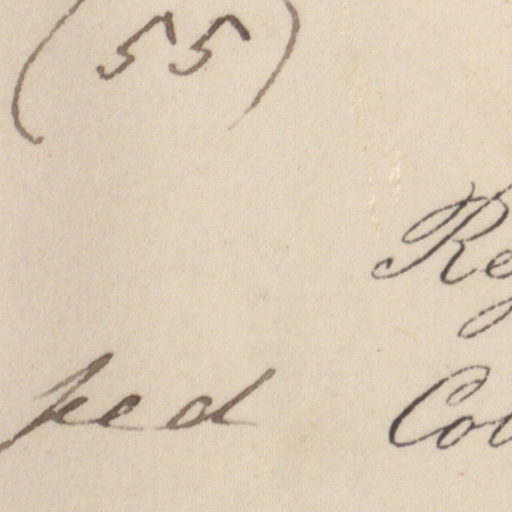 (55)
Re
ped Col